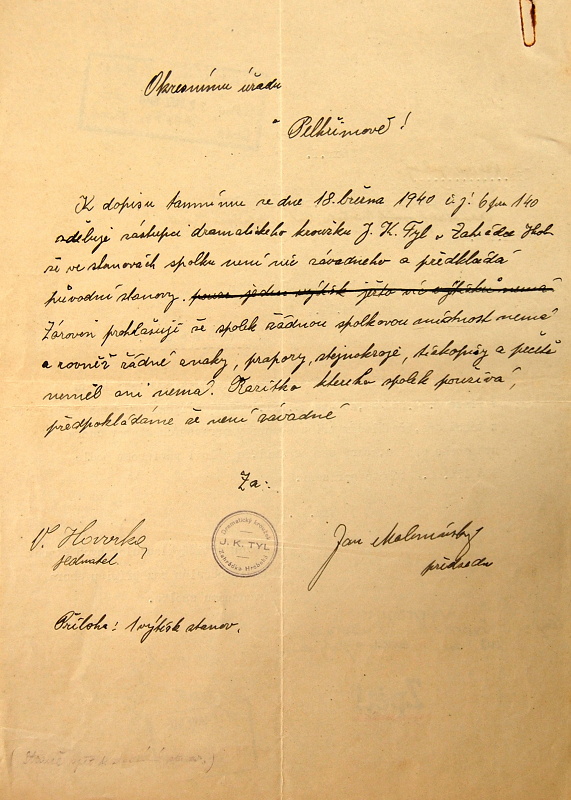 Okresnímu úřadu
v
Pelhřimově!
K dopisu tamnímu ze dne 18. března 1940 č.j. 6
sděluje zástupci dramatického kroužku J. K. Tyl v Zahrádce
že ve stanovách spolku není nic závadného a předkládá
původní stanovy. pouze jeden výtisk ježto víc výtisků nemá
Zároveň prohlašují že spolek žádnou spolkovou místnost nemá
a rovněž žádné znaky, prapory, stejnokroje, tiskopisy a pečetě
neměl ani nemá. Razítko kterého spolek používá,
předpokládáme že není závadné
Za:
V. Hovorka
jednatel.
Dramatický kroužek
J. K. TYL
Jan
předseda
Příloha: 1 výtisk stanov.